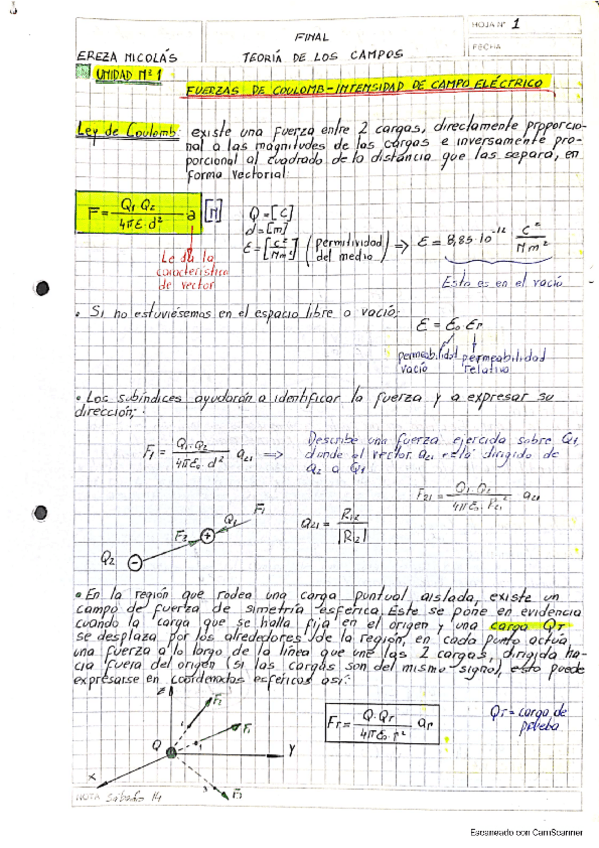 HOJA Nº 1
FINAL
FECHA
EREZA NICOLÁS TEORÍA DE LOS CAMPOS
UNIDAD Nº 1
FUERZAS DE COULOMB - INTENSIDAD DE CAMPO ELÉCTRICO
Ley de Coulomb: existe una fuerza entre 2 cargas, directamente proporcio-
nal a las magnitudes de las cargas e inversamente pro-
porcional al cuadrado de la distancia que las separa, en
forma vectorial
F = Q1 Q2 / 4πε·d² a [N]
Q = [C]
d = [m]
ε = [C²/Nm²] (permitividad del medio) ⇒ ε = 8,85·10⁻¹² C²/Nm²
Le da la
característica
de vector
Esto es en el vacío
• Si no estuviésemos en el espacio libre o vació;
ε = ε₀ εr
permeabilidad vacío
permeabilidad relativa
• Los subíndices ayudarán a identificar la fuerza y a expresar su
dirección;
F1 = Q1·Q2 / 4πε₀·d² a21 ⇒
Describe una fuerza ejercida sobre Q1,
donde el vector a21 está dirigido de
a2 a Q1
F21 = Q1·Q2 / 4πε₀·R21² a21
a21 = R12 / |R12|
F1
Q1
F2
Q2
• En la región que rodea una carga puntual aislada, existe un
campo de fuerza de simetría esférica. Este se pone en evidencia
cuando la carga que se halla fija en el origen y una carga QT
se desplaza por los alrededores de la región, en cada punto actúa
una fuerza a lo largo de la línea que une las 2 cargas, dirigida ha-
cia fuera del origen (si las cargas son del mismo signo), esto puede
expresarse en coordenadas esféricas así:
Z
F2
F1
Q
Y
X
F3
Fr = Q·QT / 4πε₀·r² ar
QT = carga de
prueba
NOTA Sábado 14
Escaneado con CamScanner